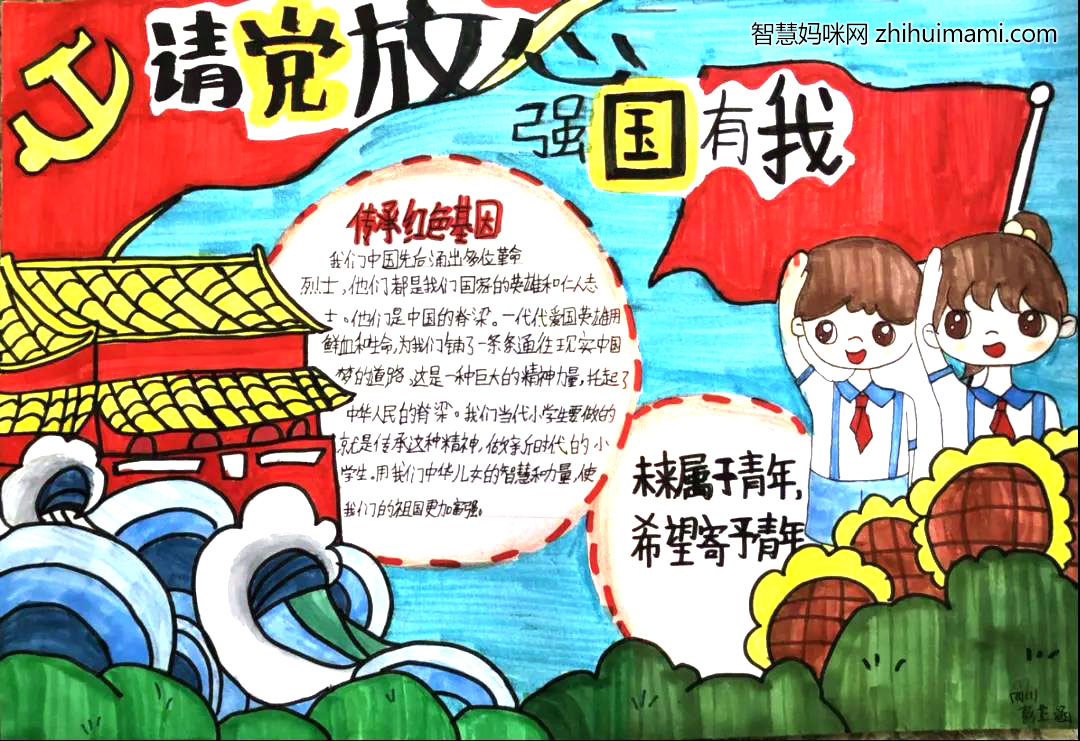 智慧妈咪网 zhihuimami.com
请党放心
强国有我
传承红色基因
我们中国先后涌出多位革命
烈士，他们都是我们国家的英雄和仁人志
士。他们是中国的脊梁。一代代爱国英雄用
鲜血和生命，为我们铺了一条条通往现实中国
梦的道路，这是一种巨大的精神力量，托起了
中华人民的脊梁。我们当代小学生要做的
就是传承这种精神，做新时代的小
学生。用我们中华儿女的智慧和力量，使
我们的祖国更加富强。
未来属于青年，
希望寄予青年
四川